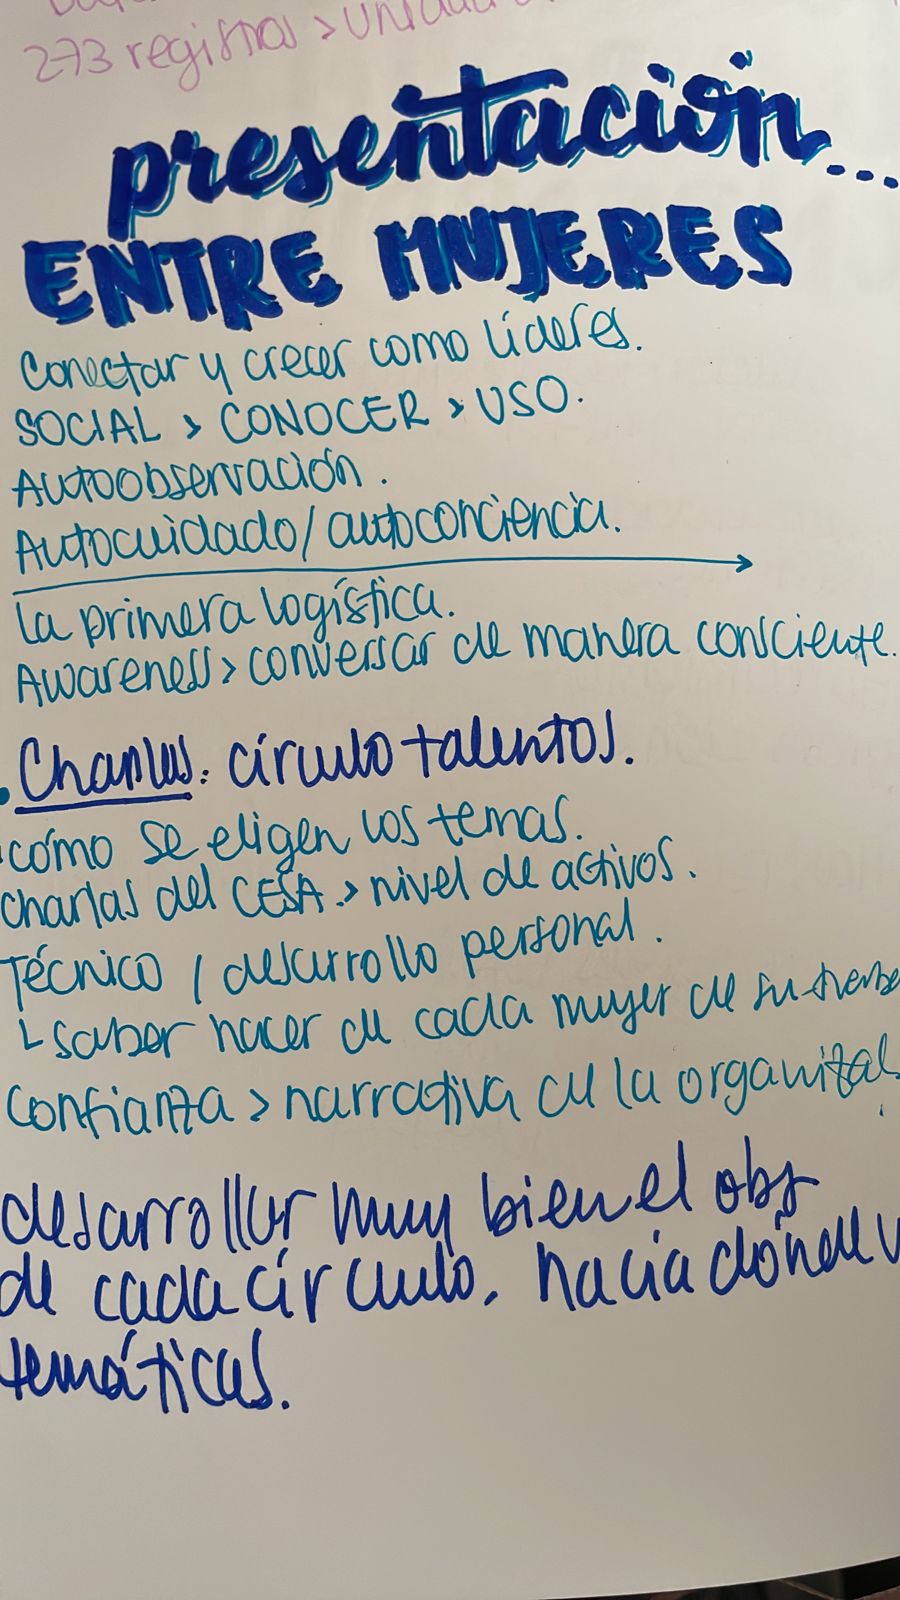 273 registros > unidad
presentación...
ENTRE MUJERES
Conectar y crecer como líderes.
SOCIAL > CONOCER > USO.
Autoobservación.
Autocuidado/autoconciencia.
La primera logística.
Awareness > conversar de manera consciente.
Charlas: círculo talentos.
cómo se eligen los temas.
charlas del CESA > nivel de activos.
Técnico / desarrollo personal.
saber hacer de cada mujer de su
Confianza > narrativa de la
desarrollar muy bien el obj
de cada círculo. hacia dónde v
temáticas.